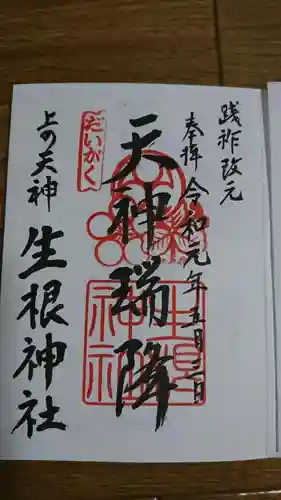 践祚改元
奉拝 令和元年五月三日
天神瑞降
だいがく
上の天神
生根神社